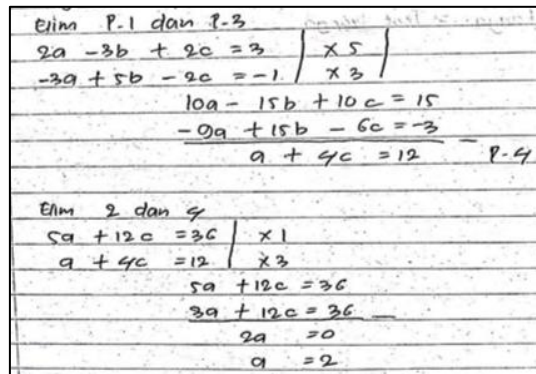 Elim P-1 dan P-3
2a - 3b + 2c = 3 | x 5 |
-3a + 5b - 2c = -1 | x 3 |
10a - 15b + 10c = 15
-9a + 15b - 6c = -3
a + 4c = 12 - P-4
Elim 2 dan 4
5a + 12c = 36 | x 1
a + 4c = 12 | x 3
5a + 12c = 36
3a + 12c = 36 -
2a = 0
a = 2